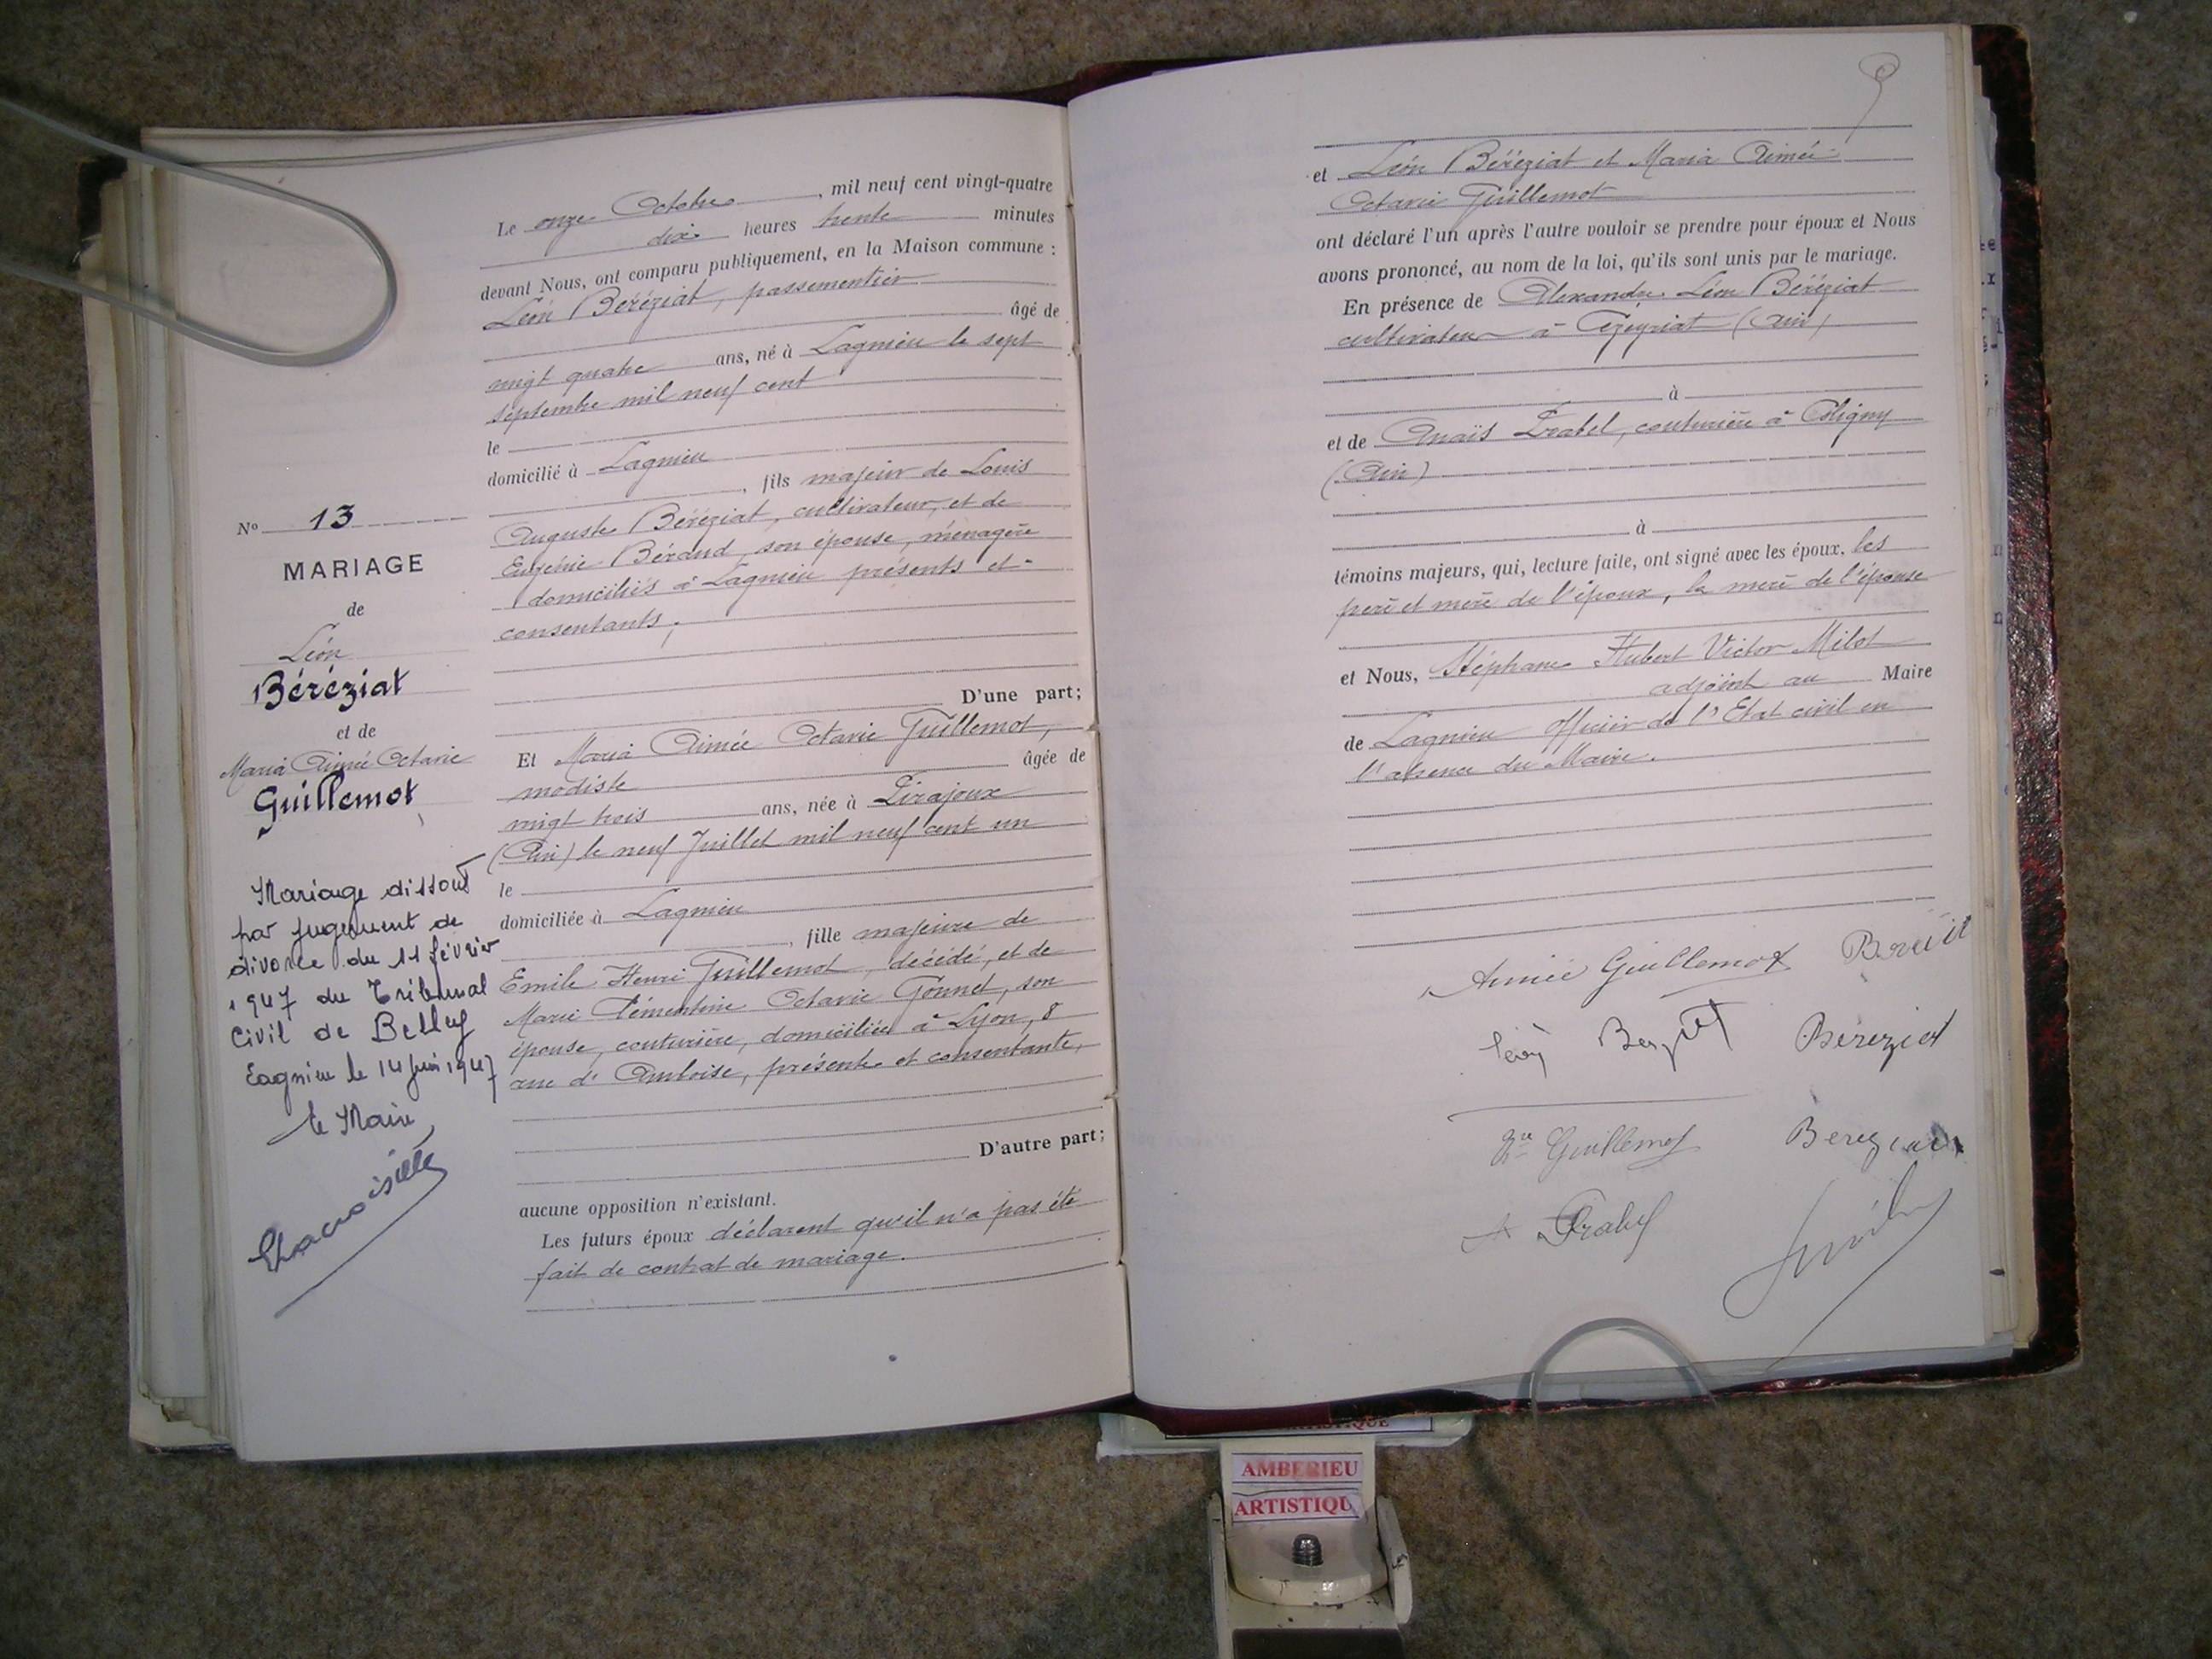 N° 13
MARIAGE
de
Léon
Béréziat
et de
Maria Aimée Octavie
Guillemot
Mariage dissout
par jugement de
divorce du 11 février
1947 du Tribunal
Civil de Belley
Lagnieu le 14 juin 1947
le Maire
Le onze Octobre, mil neuf cent vingt-quatre
dix heures trente minutes
devant Nous, ont comparu publiquement, en la Maison commune :
Léon Béréziat, passementier
âgé de
vingt quatre ans, né à Lagnieu le sept
septembre mil neuf cent
le
domicilié à Lagnieu
, fils majeur de Louis
Auguste Béréziat, cultivateur, et de
Eugénie Béraud, son épouse, ménagère
domiciliés à Lagnieu présents et
consentants;
D'une part;
Et Maria Aimée Octavie Guillemot,
modiste âgée de
vingt trois ans, née à Pirajoux
(Ain) le neuf Juillet mil neuf cent un
le
domiciliée à Lagnieu
, fille majeure de
Emile Henri Guillemot, décédé, et de
Marie Clémentine Octavie Gonnet, son
épouse, couturière, domiciliée à Lyon, 8
rue d'Amboise, présente et consentante,
D'autre part;
aucune opposition n'existant.
Les futurs époux déclarent qu'il n'a pas été
fait de contrat de mariage.
9
et Léon Béréziat et Maria Aimée
Octavie Guillemot
ont déclaré l'un après l'autre vouloir se prendre pour époux et Nous
avons prononcé, au nom de la loi, qu'ils sont unis par le mariage.
En présence de Alexandre Léon Béréziat
cultivateur à Ceyzériat (Ain)
à
et de Anaïs Drabel, couturière à Coligny
(Ain)
à
témoins majeurs, qui, lecture faite, ont signé avec les époux, les
père et mère de l'époux, la mère de l'épouse
et Nous, Stéphane Hubert Victor Milot
adjoint au Maire
de Lagnieu Officier de l'Etat civil en
l'absence du Maire.
Aimée Guillemot
Béréziat
Vve Guillemot
Béréziat
AMBERIEU
ARTISTIQU